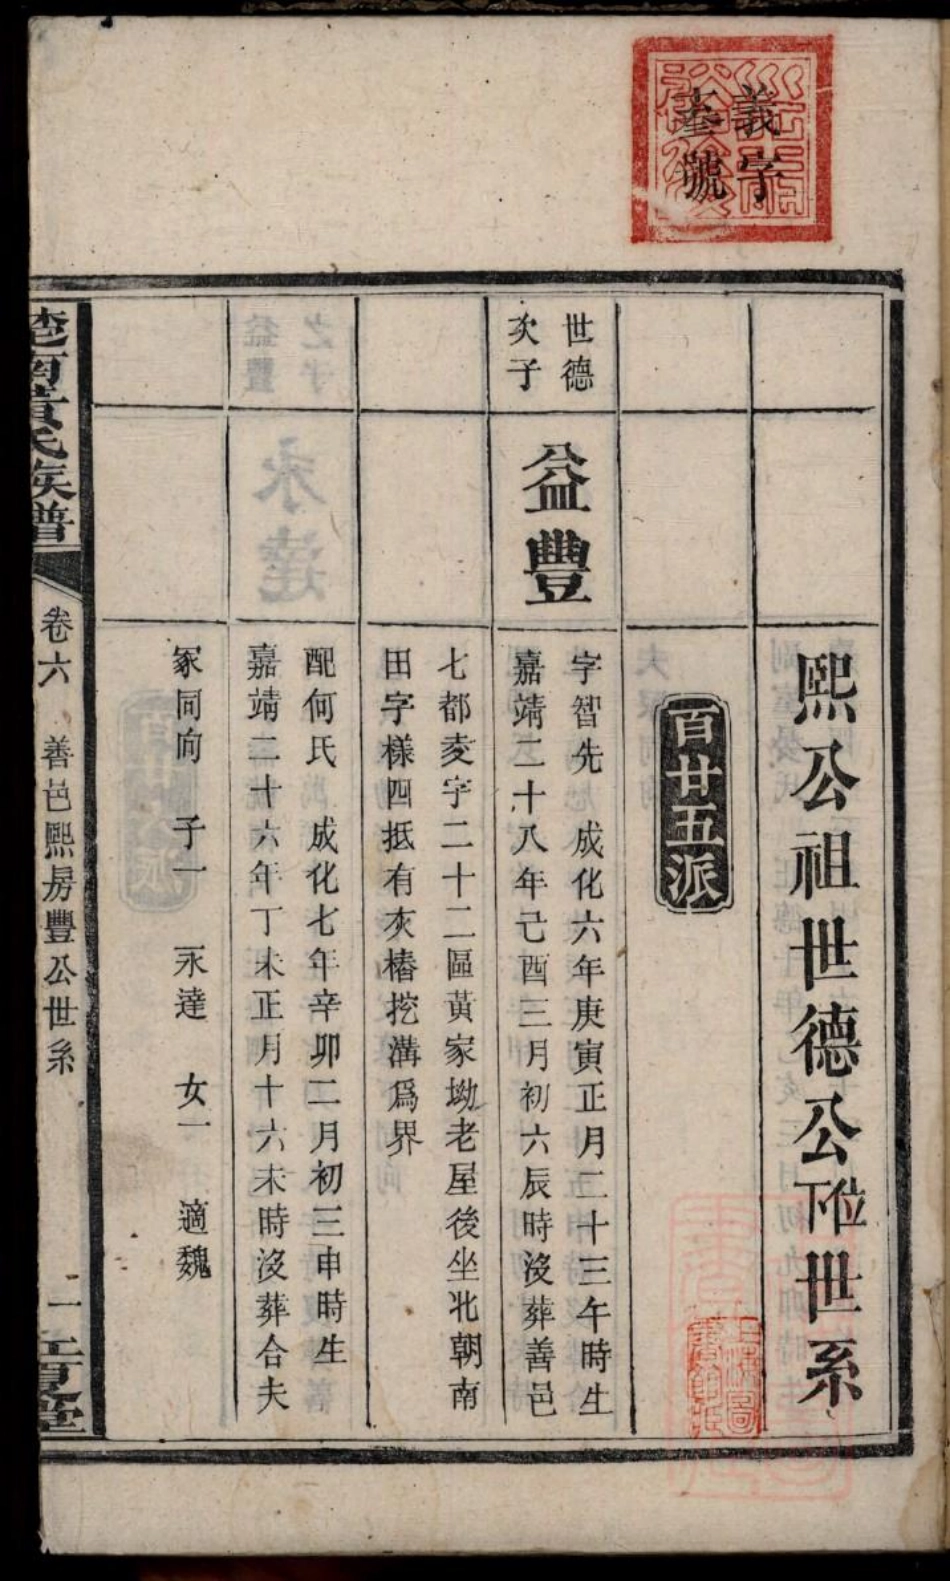 義字
奎號
熙公祖世德公位下世系
百廿五派
世德
次子
益豐
字智先 成化六年庚寅正月二十三午時生
嘉靖二十八年己酉三月初六辰時沒葬善邑
七都麦字二十二區黃家坳老屋後坐北朝南
田字樣四抵有灰樁挖溝爲界
配何氏 成化七年辛卯二月初三申時生
嘉靖二十六年丁未正月十六未時沒葬合夫
冢同向 子一 永達 女一 適魏
楚南黃氏族譜
卷六 善邑熙房豐公世系